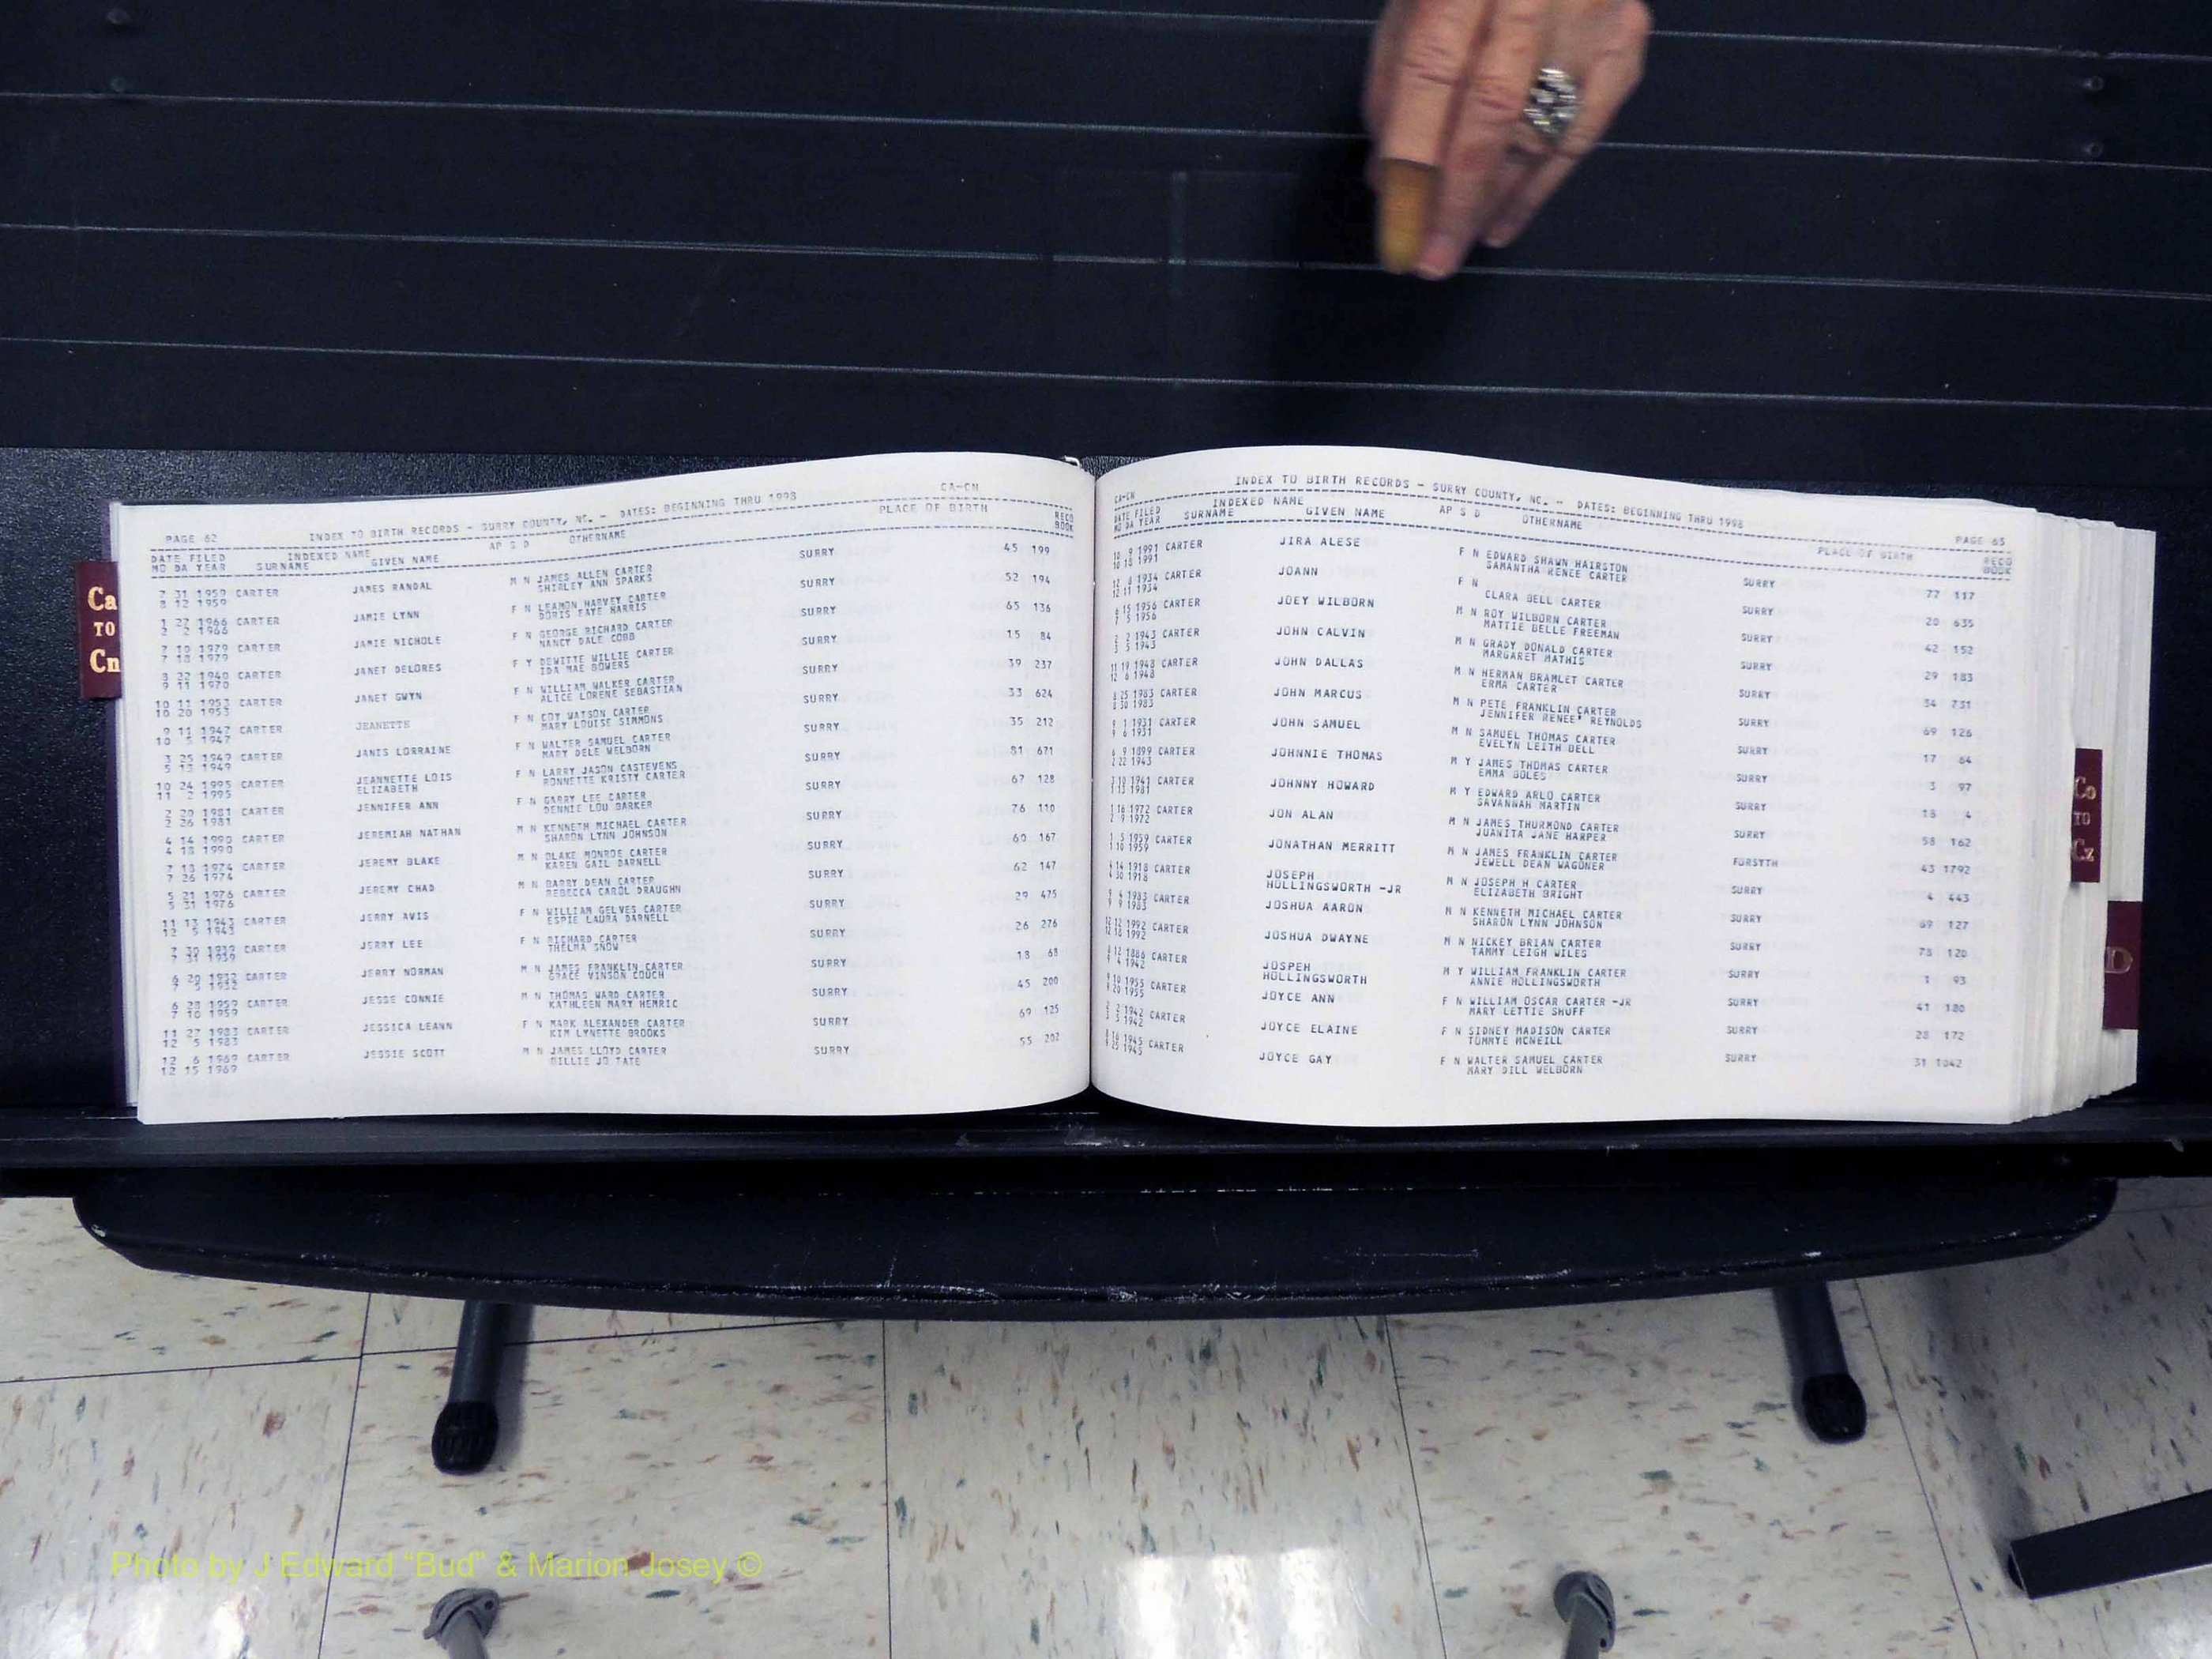 Ca
TO
Cn
PAGE 62 INDEX TO BIRTH RECORDS - SURRY COUNTY, NC. - DATES: BEGINNING THRU 1998 CA-CN
DATE FILED INDEXED NAME AP S D OTHERNAME PLACE OF BIRTH RECD
MO DA YEAR SURNAME GIVEN NAME BOOK
7 31 1959 CARTER JAMES RANDAL M N JAMES ALLEN CARTER SURRY 45 199
8 12 1959 SHIRLEY ANN SPARKS
1 27 1966 CARTER JAMIE LYNN F N LEAMON HARVEY CARTER SURRY 52 194
2 2 1966 DORIS FAYE HARRIS
7 10 1979 CARTER JAMIE NICHOLE F N GEORGE RICHARD CARTER SURRY 65 136
7 18 1979 NANCY DALE COBB
8 22 1940 CARTER JANET DELORES F Y DEWITTE WILLIE CARTER SURRY 15 84
9 11 1970 IDA MAE BOWERS
10 11 1953 CARTER JANET GWYN F N WILLIAM WALKER CARTER SURRY 39 237
10 20 1953 ALICE LORENE SEBASTIAN
9 11 1947 CARTER JEANETTE F N COY WATSON CARTER SURRY 33 624
10 5 1947 MARY LOUISE SIMMONS
3 25 1949 CARTER JANIS LORRAINE F N WALTER SAMUEL CARTER SURRY 35 212
5 13 1949 MARY DELE WELBORN
10 24 1995 CARTER JEANNETTE LOIS F N LARRY JASON CASTEVENS SURRY 81 671
11 2 1995 ELIZABETH RONNETTE KRISTY CARTER
2 20 1981 CARTER JENNIFER ANN F N GARRY LEE CARTER SURRY 67 128
2 26 1981 DENNIE LOU BARKER
4 14 1990 CARTER JEREMIAH NATHAN M N KENNETH MICHAEL CARTER SURRY 76 110
4 18 1990 SHARON LYNN JOHNSON
7 18 1974 CARTER JEREMY BLAKE M N BLAKE MONROE CARTER SURRY 60 167
7 26 1974 KAREN GAIL DARNELL
5 21 1976 CARTER JEREMY CHAD M N BARRY DEAN CARTER SURRY 62 147
5 31 1976 REBECCA CAROL DRAUGHN
11 13 1943 CARTER JERRY AVIS F N WILLIAM GELVES CARTER SURRY 29 475
12 5 1943 ESPIE LAURA DARNELL
7 30 1939 CARTER JERRY LEE F N RICHARD CARTER SURRY 26 276
7 31 1939 THELMA SNOW
6 20 1932 CARTER JERRY NORMAN M N JAMES FRANKLIN CARTER SURRY 18 68
7 5 1932 GRACE VINSON COUCH
6 28 1959 CARTER JESSE CONNIE M N THOMAS WARD CARTER SURRY 45 200
7 10 1959 KATHLEEN MARY HEMRIC
11 27 1983 CARTER JESSICA LEANN F N MARK ALEXANDER CARTER SURRY 69 125
12 5 1983 KIM LYNETTE BROOKS
12 6 1969 CARTER JESSIE SCOTT M N JAMES LLOYD CARTER SURRY 55 202
12 15 1969 BILLIE JO TATE
CA-CN INDEX TO BIRTH RECORDS - SURRY COUNTY, NC. - DATES: BEGINNING THRU 1998 PAGE 63
DATE FILED INDEXED NAME AP S D OTHERNAME PLACE OF BIRTH RECD
MO DA YEAR SURNAME GIVEN NAME BOOK
10 9 1991 CARTER JIRA ALESE F N EDWARD SHAWN HAIRSTON SURRY 77 117
10 18 1991 SAMANTHA RENEE CARTER
12 8 1934 CARTER JOANN F N SURRY 20 635
12 11 1934 CLARA BELL CARTER
6 15 1956 CARTER JOEY WILBORN M N ROY WILBORN CARTER SURRY 42 152
7 5 1956 MATTIE BELLE FREEMAN
2 2 1943 CARTER JOHN CALVIN M N GRADY DONALD CARTER SURRY 29 183
3 5 1943 MARGARET MATHIS
11 19 1948 CARTER JOHN DALLAS M N HERMAN BRAMLET CARTER SURRY 34 731
12 6 1948 ERMA CARTER
8 25 1983 CARTER JOHN MARCUS M N PETE FRANKLIN CARTER SURRY 69 126
8 30 1983 JENNIFER RENEE' REYNOLDS
9 1 1931 CARTER JOHN SAMUEL M N SAMUEL THOMAS CARTER SURRY 17 64
9 6 1931 EVELYN LEITH BELL
6 9 1899 CARTER JOHNNIE THOMAS M Y JAMES THOMAS CARTER SURRY 3 97
2 22 1943 EMMA BOLES
3 10 1941 CARTER JOHNNY HOWARD M Y EDWARD ARLO CARTER SURRY 18 4
1 13 1981 SAVANNAH MARTIN
1 16 1972 CARTER JON ALAN M N JAMES THURMOND CARTER SURRY 58 162
2 9 1972 JUANITA JANE HARPER
1 5 1959 CARTER JONATHAN MERRITT M N JAMES FRANKLIN CARTER FORSYTH 43 1792
1 10 1959 JEWELL DEAN WAGONER
4 14 1918 CARTER JOSEPH M N JOSEPH H CARTER SURRY 4 443
4 30 1918 HOLLINGSWORTH -JR ELIZABETH BRIGHT
9 4 1983 CARTER JOSHUA AARON M N KENNETH MICHAEL CARTER SURRY 69 127
9 9 1983 SHARON LYNN JOHNSON
12 12 1992 CARTER JOSHUA DWAYNE M N NICKEY BRIAN CARTER SURRY 78 120
12 18 1992 TAMMY LEIGH WILES
8 12 1886 CARTER JOSPEH M Y WILLIAM FRANKLIN CARTER SURRY 1 93
9 4 1942 HOLLINGSWORTH ANNIE HOLLINGSWORTH
9 10 1955 CARTER JOYCE ANN F N WILLIAM OSCAR CARTER -JR SURRY 41 180
9 20 1955 MARY LETTIE SHUFF
2 2 1942 CARTER JOYCE ELAINE F N SIDNEY MADISON CARTER SURRY 28 172
3 5 1942 TOMMYE MCNEILL
8 16 1945 CARTER JOYCE GAY F N WALTER SAMUEL CARTER SURRY 31 1042
9 25 1945 MARY DILL WELBORN
Co
TO
Cz
D
Photo by J Edward “Bud” & Marion Josey ©